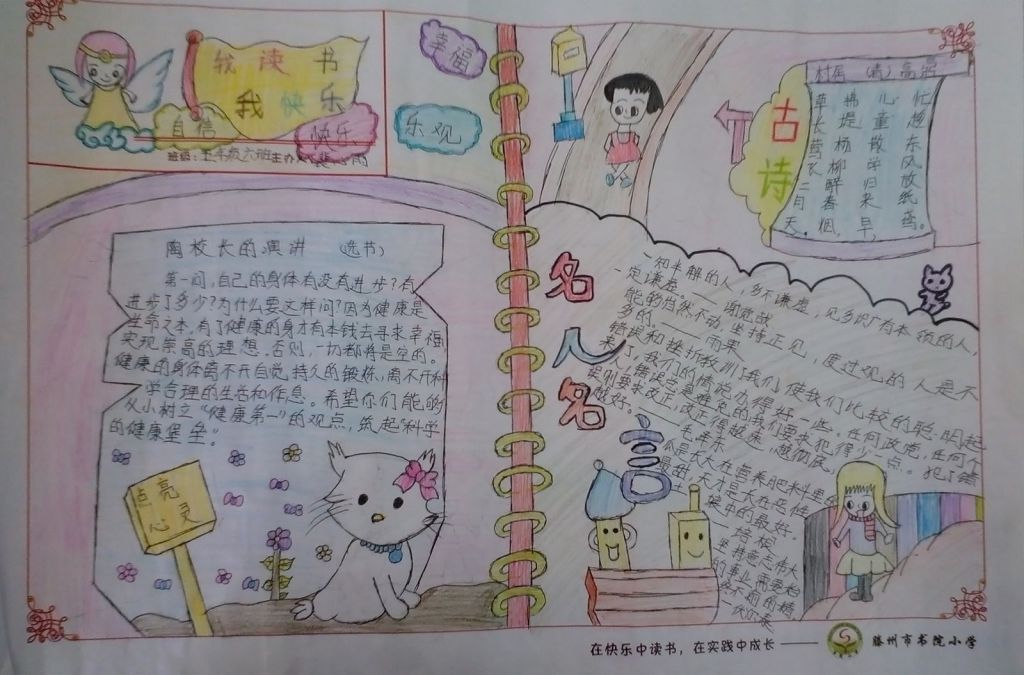 我读书
我快乐
自信
快乐
幸福
乐观
班级:五年级六班
陶校长的演讲 (选书)
第一问,自己的身体有没有进步?有
进步了多少?为什么要这样问?因为健康是
生命之本,有了健康的身才有本钱去寻求幸福
实现崇高的理想.否则,一切都将是空的。
健康的身体离不开自觉,持久的锻炼,离不开科
学合理的生活和作息。希望你们能够
从小树立“健康第一”的观点,筑起“科学
的健康堡垒。”
点亮
心灵
古诗
村居 (清)高鼎
草长莺飞二月天,
拂堤杨柳醉春烟,
儿童散学归来早,
忙趁东风放纸鸢。
名人名言
一知半解的人,多不谦虚,见多识广有本领的人,
一定谦虚。——谢觉哉
能的岿然不动,坚持正见,度过难的人是不
多的.——雨果
错误和挫折教训了我们,使我们比较的聪明起
来了,我们的情况办得好一些。任何政党,任何个
人,错误总是难免的,我们要求犯得少一点。犯了错
误则要求改正,改正得越速,越彻底,
越好。——毛泽东
瓜是长大在营养肥料里的
最甜,天才是长在恶性
土壤中的最好.
——培根
坚持意志伟大
的事业需要始
终不渝的精
神
在快乐中读书,在实践中成长——
滕州市书院小学